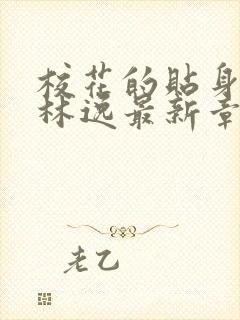 校花的贴身
林逸最新章
老乙